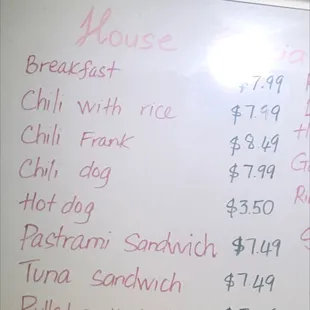 House
Breakfast $7.99
Chili with rice $7.99
Chili Frank $8.49
Chili dog $7.99
Hot dog $3.50
Pastrami Sandwich $7.49
Tuna sandwich $7.49